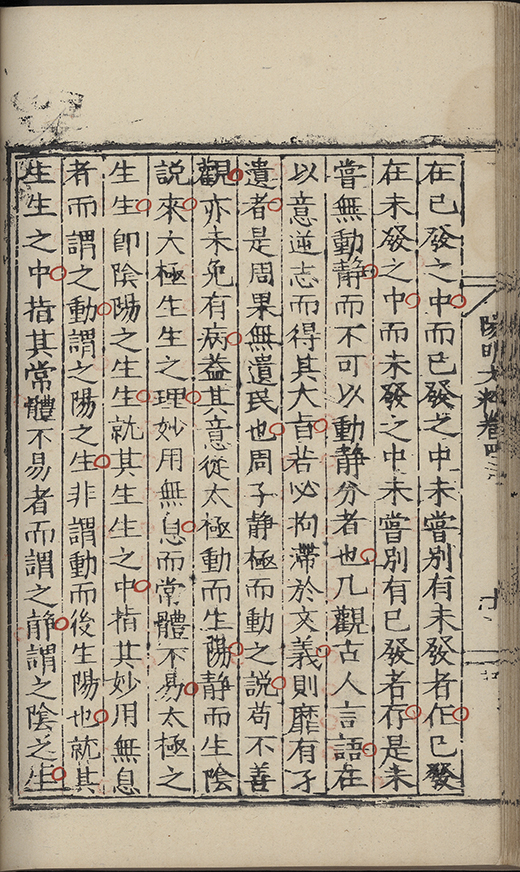 在已發之中而已發之中未嘗別有未發者在已發
在未發之中而未發之中未嘗別有已發者存是未
嘗無動靜而不可以動靜分者也凡觀古人言語在
以意逆志而得其大旨若必拘滯於文義則靡有孑
遺者是周果無遺民也周子靜極而動之說苟不善
觀亦未免有病蓋其意從太極動而生陽靜而生陰
說來大極生生之理妙用無息而常體不易太極之
生生即陰陽之生生就其生生之中指其妙用無息
者而謂之動謂之陽之生非謂動而後生陽也就其
生生之中指其常體不易者而謂之靜謂之陰之生